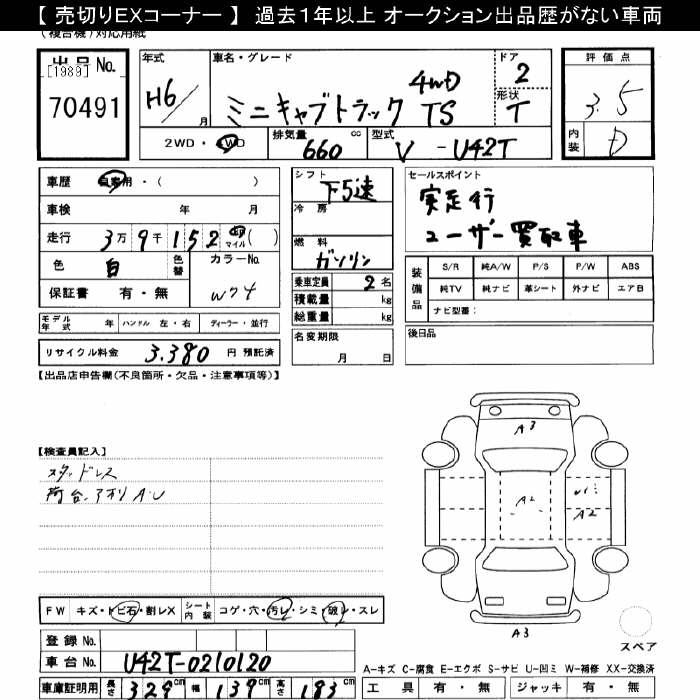 【 売切りEXコーナー 】 過去1年以上 オークション出品歴がない車両
(複合機)対応用紙
出品 No.
[1989]
70491
年式
H6/月
車名・グレード
ミニキャブトラック 4WD TS
ドア
2
形状
T
2WD・4WD
排気量 660 cc
型式 V - U42T
評価点
3.5
内装 D
車歴 自家用・( )
車検 年 月
走行 3万9千152 km マイル ( )
色 白 色替 カラーNo. W74
保証書 有・無
シフト F5速
冷房
燃料 ガソリン
乗車定員 2 名
積載量 kg
総重量 kg
セールスポイント
実走行
ユーザー買取車
装備品 S/R 純A/W P/S P/W ABS
純TV 純ナビ 革シート 外ナビ エアB
ナビ型番:
モデル年式 年 ハンドル 左・右 ディーラー・並行
リサイクル料金 3.380 円 預託済
名変期限 月 日
後日品
【出品店申告欄(不良箇所・欠品・注意事項等)】
【検査員記入】
スタッドレス
荷台、アオリA・U
A3
A2
A2
A3
スペア
FW キズ・トビ石・割レX シート内装 コゲ・穴・汚レ・シミ・破レ・スレ
登録 No.
車台 No. U42T-0210120
車庫証明用 長さ 329cm 幅 139cm 高さ 183cm
A-キズ C-腐食 E-エクボ S-サビ U-凹ミ W-補修 XX-交換済
工具 有・無 ジャッキ 有・無